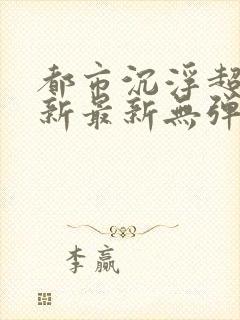 都市沉浮超
新最新無弹
李赢